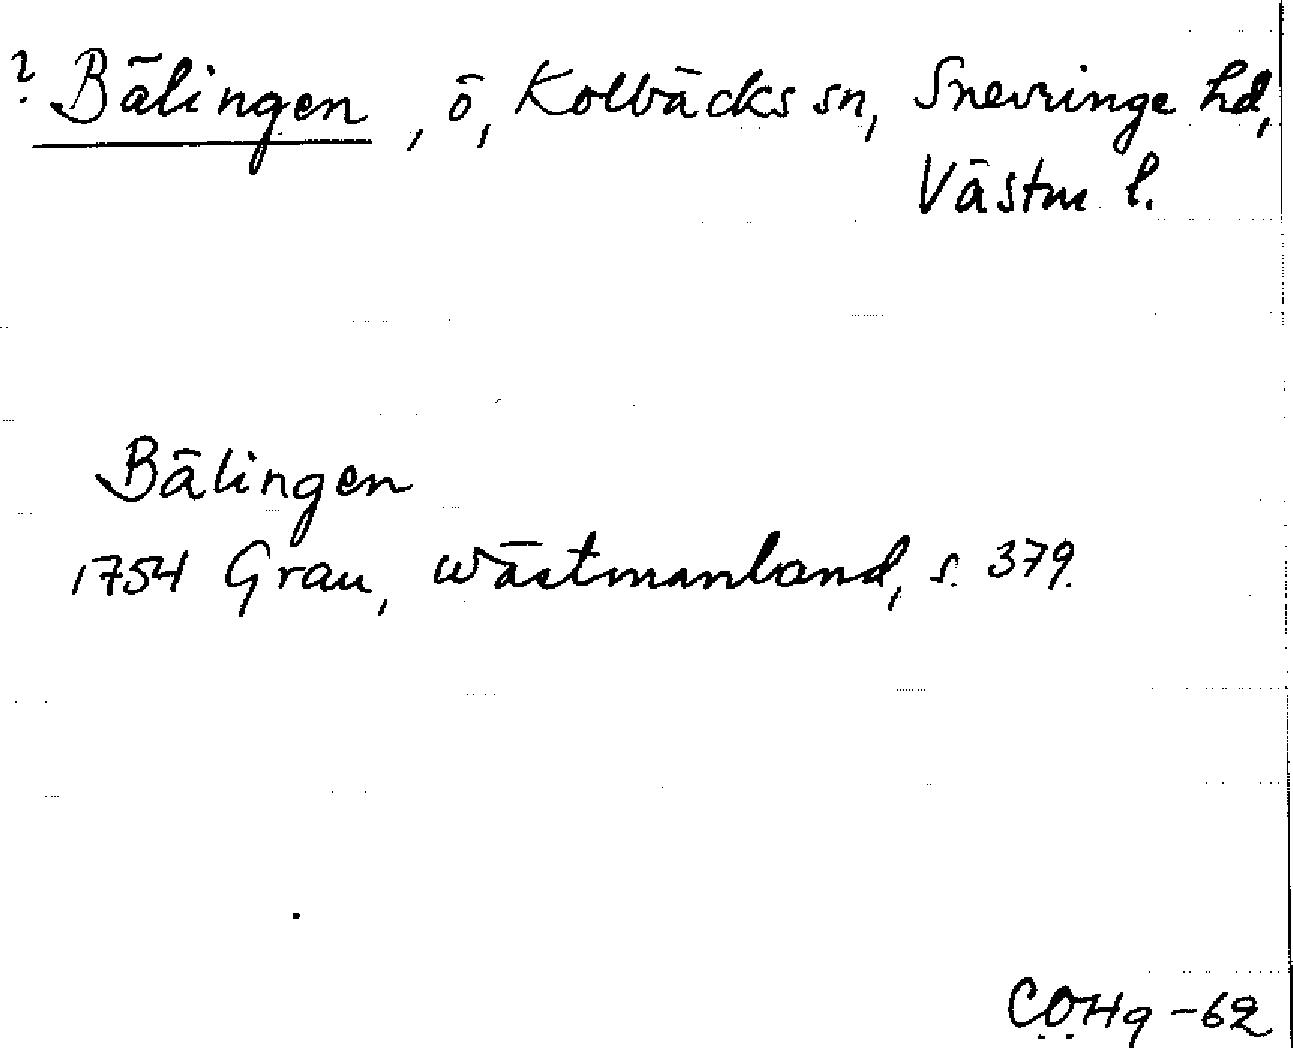 ? Bälingen, ö, Kolbäcks sn, Snevringe hd,
Västm l.
Bälingen
1754 Grau, Wästmanland, s. 379.
COHg -62